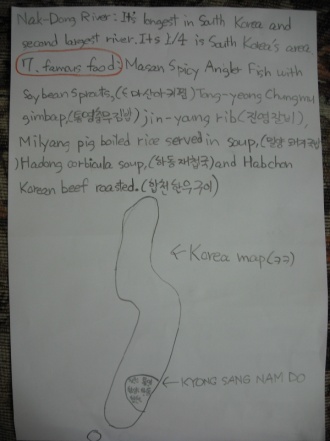 Nak-Dong River: It's longest in South Korea and
second largest river. Its 1/4 is South Korea's area
7. famous food: Masan Spicy Angler Fish with
Soybean Sprouts, Tong-yeong Chungmu
gimbap, (통영충무김밥) jin-young rib (진영갈비),
Milyang pig boiled rice served in soup, (밀양 돼지국밥
) Hadong corbicula soup, (하동 재첩국) and Habchon
Korean beef roasted. (합천 한우구이)
← Korea map (ㅋㅋ)
← KYONG SANG NAM DO